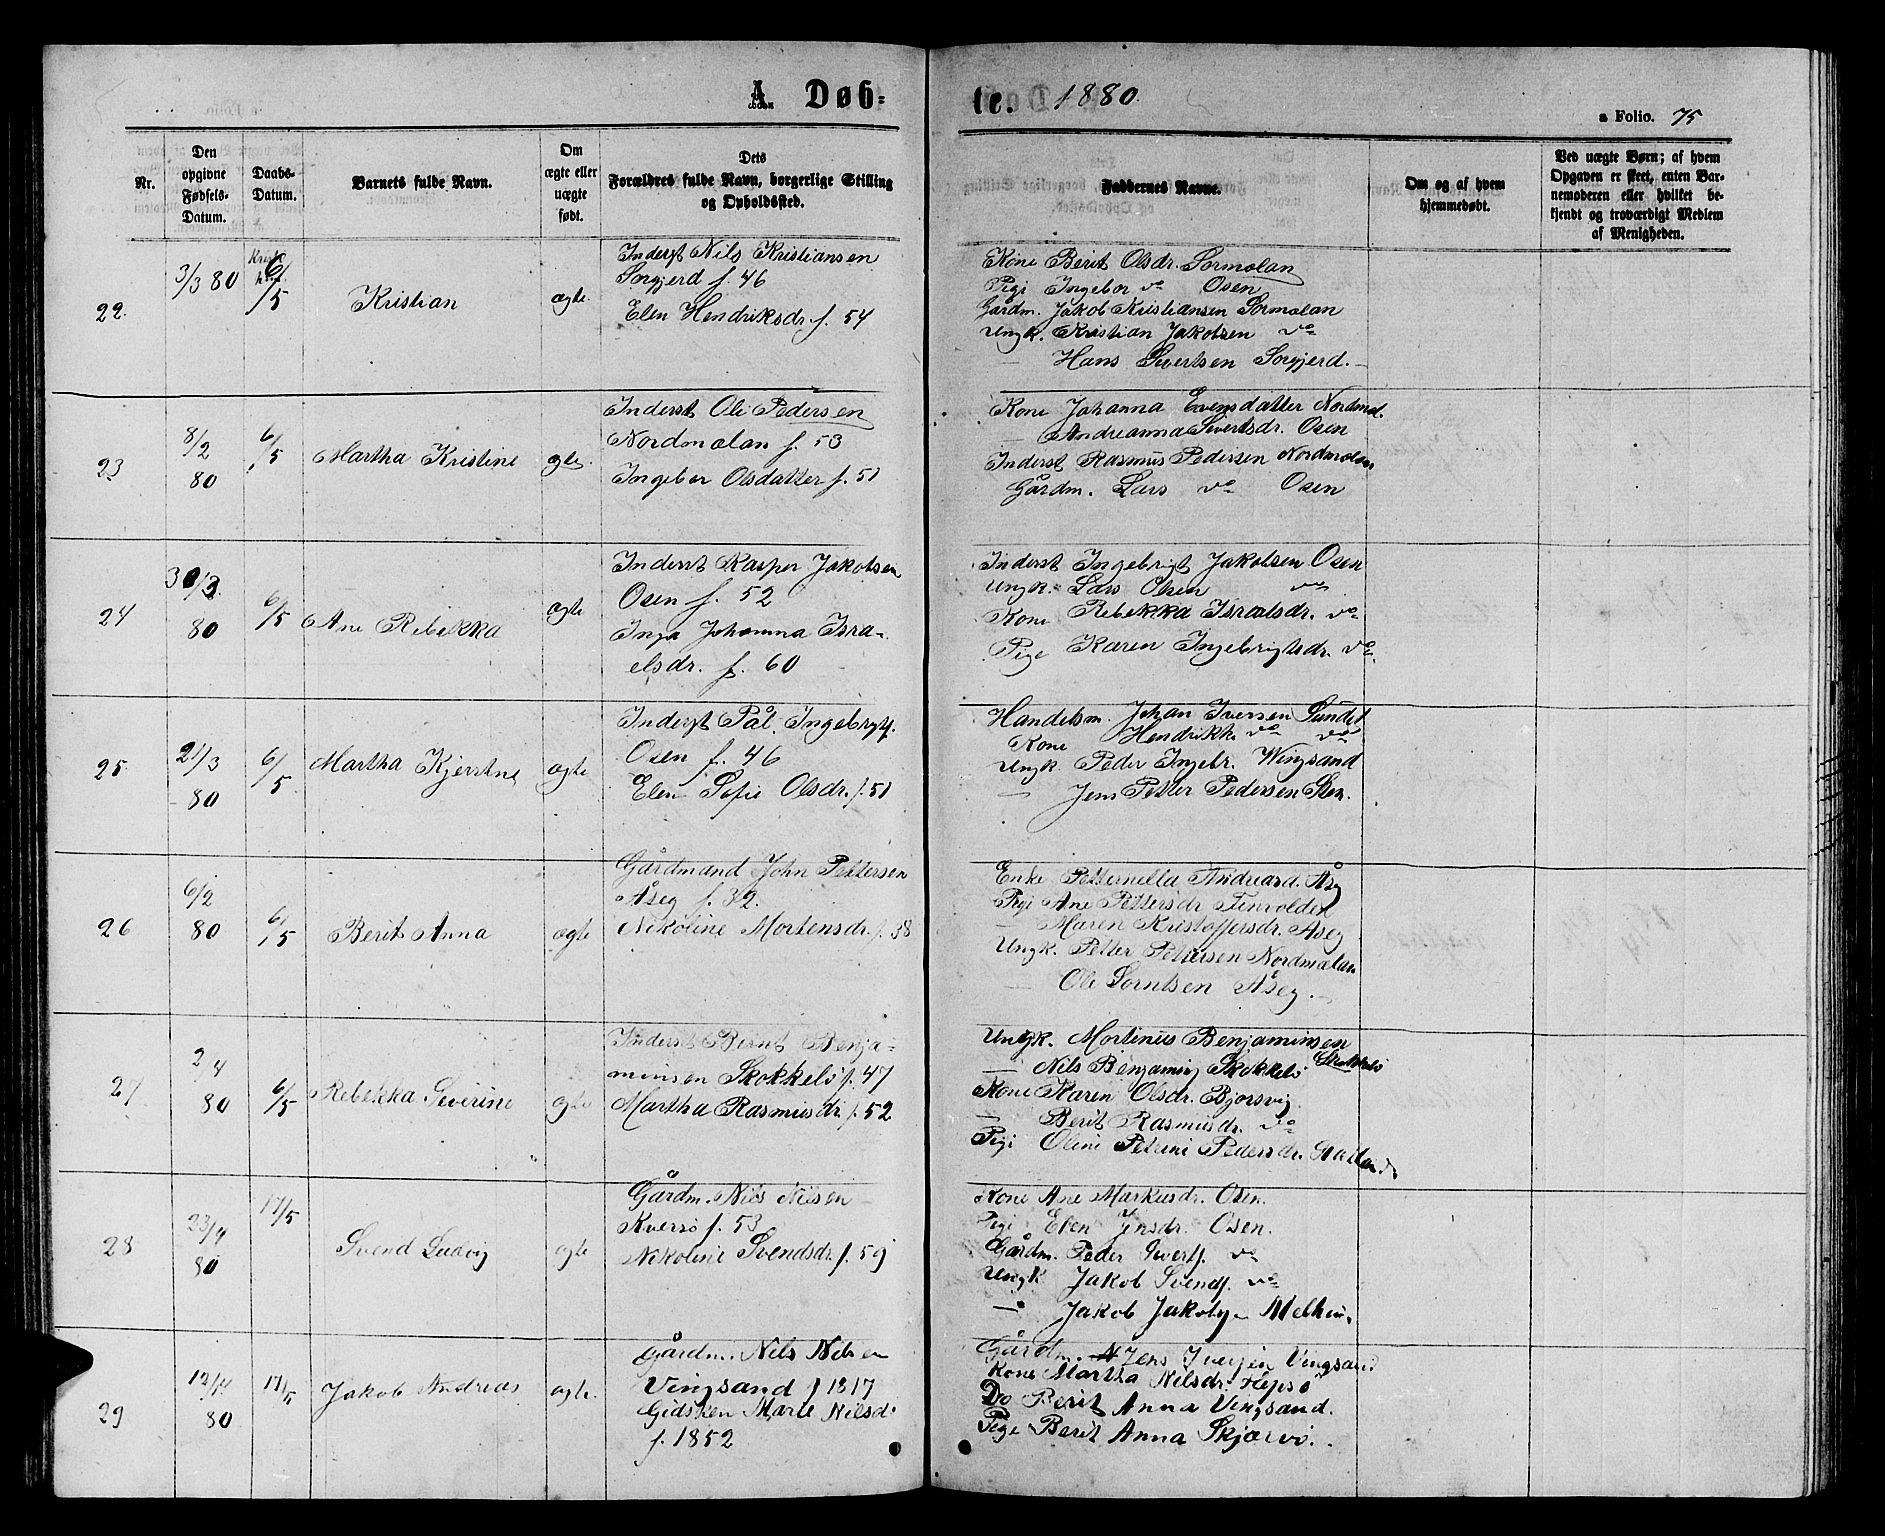 A. Døb=
te. 1880.
a Folio. 75
Nr.
Den opgivne Fødsels-Datum.
Daabs-Datum.
Barnets fulde Navn.
Om ægte eller uægte født.
Dets Forældres fulde Navn, borgerlige Stilling og Opholdssted.
Faddernes Navne.
Om og af hvem hjemmedøbt.
Ved uægte Børn; af hvem Opgaven er skeet, enten Barnemoderen eller hvilket bekjendt og troværdigt Medlem af Menigheden.
22. 3/3 80 6/5 Kristian ægte.
Inderst Nils Kristiansen
Sorgjerd f. 46
Elen Hendriksdr. f. 54
Kone Berit Olsdr. Sørmølan
Pigi Ingebor do Osen
Gårdm. Jakob Kristiansen Sormolan
Ungk. Kristian Jakobsen do
— Hans Sivertsen Sorgjerd.
23 8/2 80 6/5 Martha Kristine ægte.
Inderst Ole Pedersen
Nordmølan f. 53
Ingebor Olsdatter f. 51
Kone Johanna Evensdatter Nordmøl.
— Andreanna Sivertsdr. Osen
Inderst Rasmus Pedersen Nordmølan
Gårdm. Lars do Osen
24 30/3. 80 6/5 Ane Rebekka ægte
Inderst Kasper Jakobsen
Osen f. 52
Inga Johanna Isra-
elsdr. f. 60
Inderst Ingebrigt Jakobsen Osen
Ungk. Lars Olsen do
Kone Rebekka Israelsdr. do
Pige Karen Ingebrigtsdr. do.
25. 21/3 80 6/5 Martha Kjerstine ægte
Inderst Pål. Ingebrigtf.
Osen f. 46
Elen Sofie Olsdr. f. 51
Handelsm. Johan Iversen Sundet
Kone Hendrikke do do
Ungk. Peder Ingebr. Wingsand
— Jens Petter Pedersen Sten.
26 6/2 80 6/5 Berit Anna ægte
Gårdmand John Pettersen
Åseg f. 32.
Nikoline Mortensdr. f. 38
Enke Petternella Andreasd. Åseg
Pigi Ane Pettersdr Finvolden
— Maren Kristoffersdr. Åseg
Ungk. Petter Pettersen Nordmølan
— Ole Sorntsen Åseg.
27 2/4 80 6/5 Rebekka Severine ægte
Inderst Bernt Benja-
minsen Skokkelö f. 47
Martha Rasmusdr f. 52
Ungk. Mortinus Benjaminsen Skokkelö
— Nils Benjaming Skokkelö
Kone Karen Olsdr. Bjorsvig
— Berit Rasmusdr. do
Pigi Oline Petrine Pedersdr.
28 23/4 80 17/5 Svend Ludvig ægte
Gårdm. Nils Nilsen
Kversö f. 53
Nikoline Svendsdr. f. 59
Kone Ane Markusdr. Osen.
Pigi Elen Jensdr. Osen.
Gårdm. Peder Sivertf. do
Ungk Jakob Svendf. do
— Jakob Jakobsen
29 12/4 80 17/5 Jakob Andreas ægte.
Gårdm. Nils Nilsen
Vingsand f 1817
Gidsken Marie Nilsd.
f. 1852
Gårdm. Jens Iversen Vingsand
Kone Martha Nilsdr. Hepsö
Do Berit Anna Vingsand.
Pige Berit Anna Skjærvö.